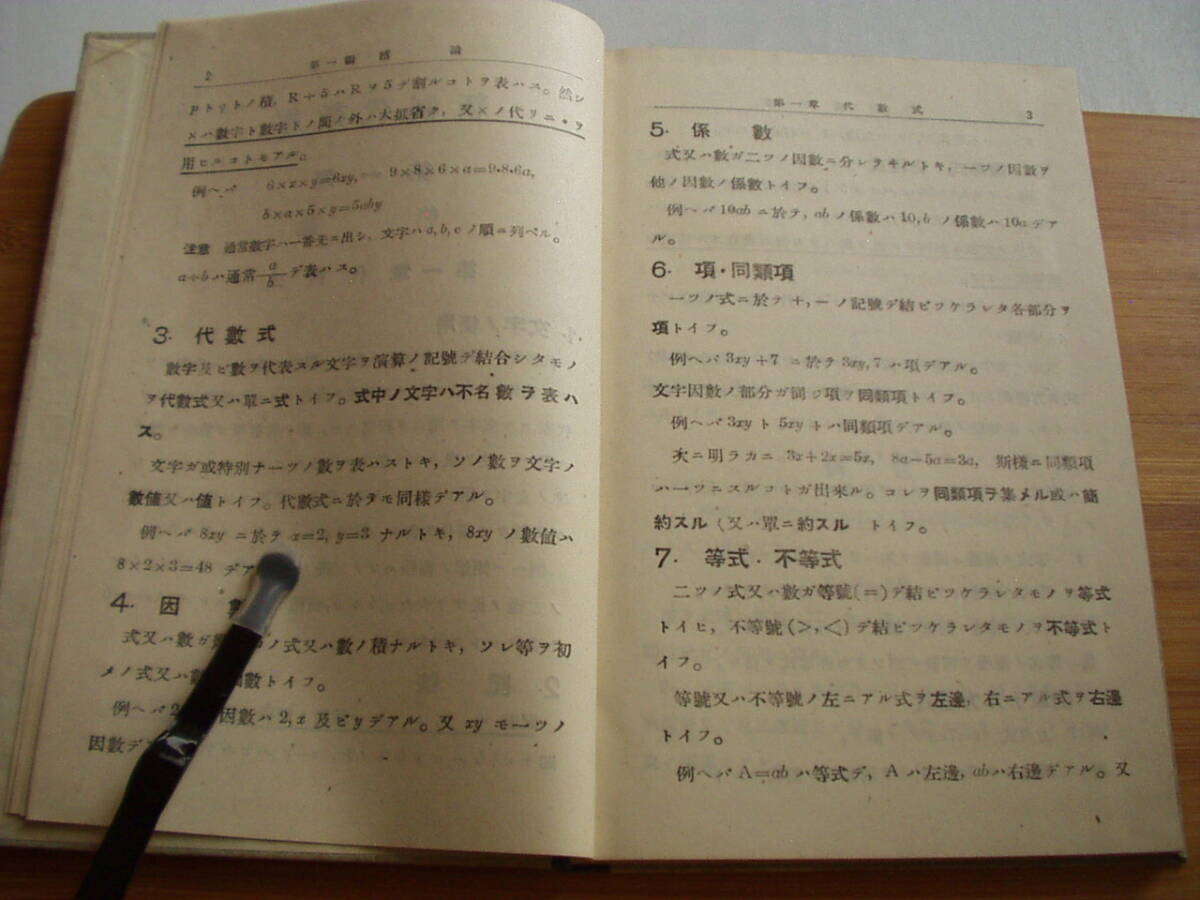 2 第一編 緒論
pトrトノ積, R÷5ハRヲ5デ割ルコトヲ表ハス。然シ
×ハ數字ト數字トノ間ノ外ハ大抵省ク, 又×ノ代リニ・ヲ
用ヒルコトモアル。
例ヘバ 6×x×y=6xy, 9×8×6×a=9・8・6a,
5×a×b×y=5aby
注意 通常數字ハ一番先ニ出シ, 文字ハa, b, cノ順ニ列ベル。
a÷bハ通常a/bデ表ハス。
3. 代數式
數字及ビ數ヲ代表スル文字ヲ演算ノ記號デ結合シタモノ
ヲ代數式又ハ單ニ式トイフ。式中ノ文字ハ不名數ヲ表ハ
ス。
文字ガ或特別ナ一ツノ數ヲ表ハストキ, ソノ數ヲ文字ノ
數値又ハ値トイフ。代數式ニ於テモ同樣デアル。
例ヘバ 8xy ニ於テ x=2, y=3 ナルトキ, 8xy ノ數値ハ
8×2×3=48 デア
4. 因
式又ハ數ガ ノ式又ハ數ノ積ナルトキ, ソレ等ヲ初
メノ式又ハ 因數トイフ。
例ヘバ2 因數ハ 2, x 及ビyデアル。又 xy モ一ツノ
因數デ
第一章 代數式 3
5. 係數
式又ハ數ガ二ツノ因數ニ分レテキルトキ, 一ツノ因數ヲ
他ノ因數ノ係數トイフ。
例ヘバ10abニ於テ, abノ係數ハ10, bノ係數ハ10aデア
ル。
6. 項・同類項
一ツノ式ニ於テ+, −ノ記號デ結ビツケラレタ各部分ヲ
項トイフ。
例ヘバ 3xy+7 ニ於テ 3xy, 7 ハ項デアル。
文字因數ノ部分ガ同ジ項ヲ同類項トイフ。
例ヘバ 3xyト 5xy トハ同類項デアル。
次ニ明ラカニ 3x+2x=5x, 8a−5a=3a, 斯樣ニ同類項
ハ一ツニスルコトガ出來ル。コレヲ同類項ヲ集メル或ハ簡
約スル(又ハ單ニ約スル トイフ。
7. 等式・不等式
二ツノ式又ハ數ガ等號(=)デ結ビツケラレタモノヲ等式
トイヒ, 不等號(>, <)デ結ビツケラレタモノヲ不等式ト
イフ。
等號又ハ不等號ノ左ニアル式ヲ左邊, 右ニアル式ヲ右邊
トイフ。
例ヘバA=abハ等式デ, Aハ左邊, abハ右邊デアル。又